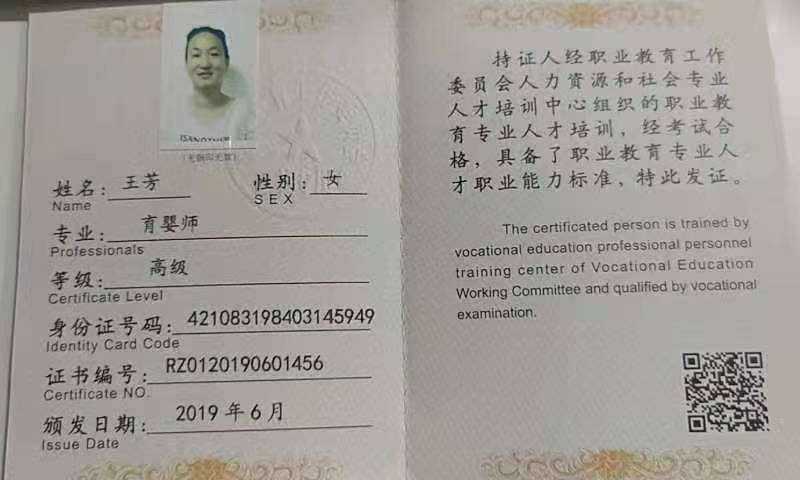 姓名：王芳
Name
性别：女
SEX
专业：育婴师
Professionals
等级：高级
Certificate Level
身份证号码：421083198403145949
Identity Card Code
证书编号：RZ0120190601456
Certificate NO.
颁发日期：2019 年 6 月
Issue Date
持证人经职业教育工作
委员会人力资源和社会专业
人才培训中心组织的职业教
育专业人才培训，经考试合
格，具备了职业教育专业人
才职业能力标准，特此发证。
The certificated person is trained by
vocational education professional personnel
training center of Vocational Education
Working Committee and qualified by vocational
examination.